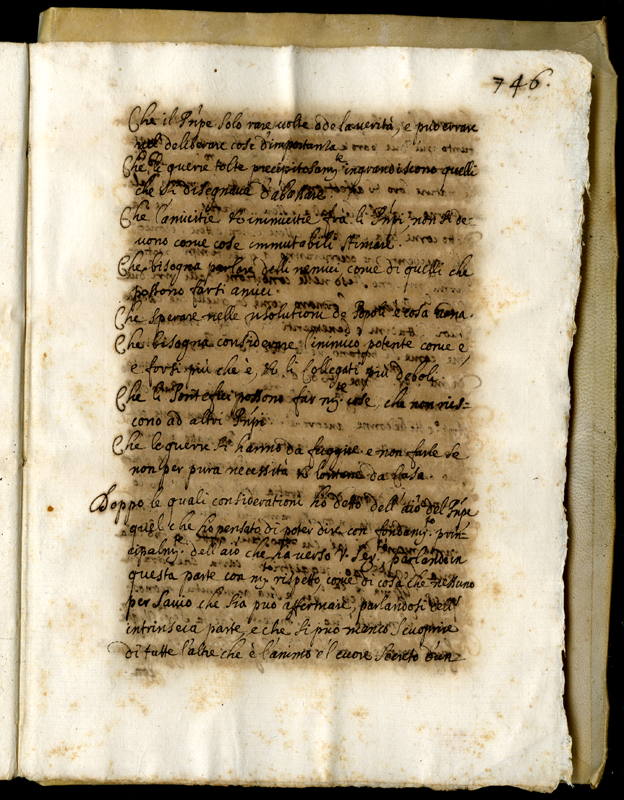 746.
Che il Pñpe solo rare volte ode la verità, e può errare
nelle deliberare cose d'importanza.
Che le guerre tolte precipitosamte ingrandiscono quelli
che si disegnava d'abassare.
Che l'amicitie et inimicitie frà li Pñpi, non si de-
vono come cose immutabili stimare.
Che bisogna parlare delli nemici come di quelli che
possono farsi amici.
Che sperare nelle risolutioni de Popoli è cosa vana.
Che bisogna considerare l'inimico potente come è,
e forsi più che è, et li Collegati più deboli.
Che li Pontefici possono far mte cose, che non ries-
cono ad altri Pñpi.
Che le guerre si hanno da fuggire e non farle se
non per pura necessità et lontane da Casa.
Doppo le quali considerationi hò detto dell' aio del Pñpe
quel che hò pensato di poter dire con fondamto. prin-
cipalmte. dell' aio che ha verso V. Sertà parlando in
questa parte con mto rispetto, come di cosa che nessuno
per savio che sia può affermare, parlandosi dell'
intrinseca parte, e che si può manco scuoprire
di tutte l'altre che è l'animo e'l cuore secreto d'un